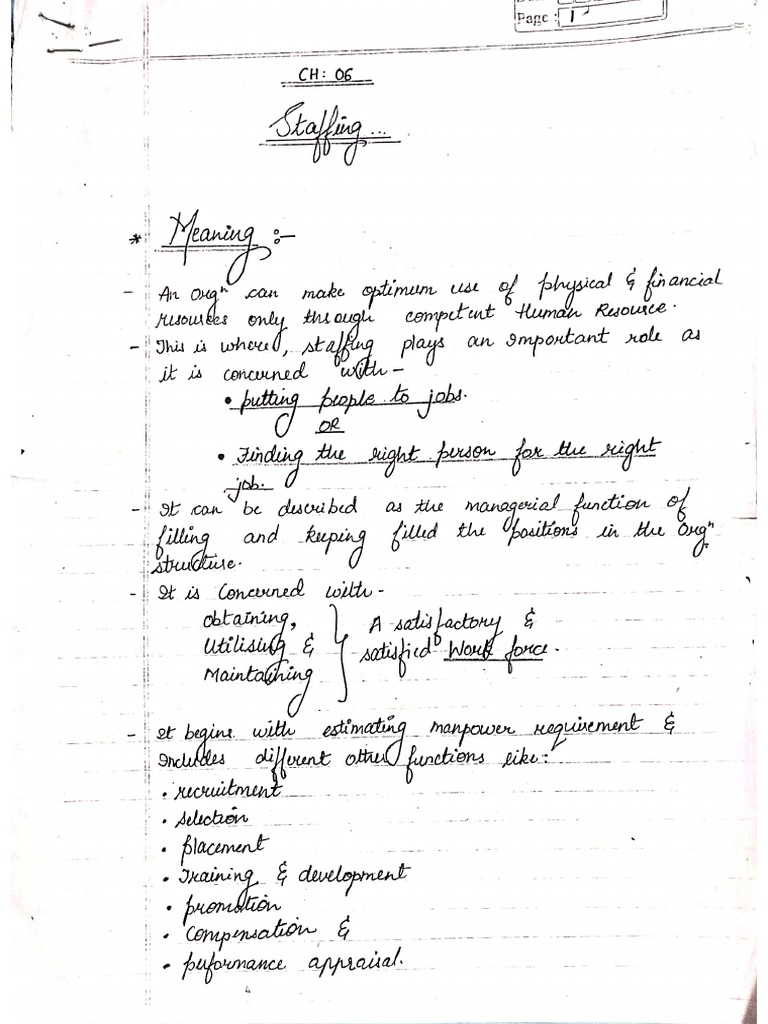 Page : 1
CH: 06
Staffing...
* Meaning :-
- An Orgⁿ can make optimum use of physical & financial
resources only through competent Human Resource.
- This is where, staffing plays an important role as
it is concerned with -
• putting people to jobs.
OR
• Finding the right person for the right
job.
- It can be described as the managerial function of
filling and keeping filled the positions in the Orgⁿ
structure.
- It is concerned with -
obtaining,
Utilising &
Maintaining
A satisfactory &
satisfied Work force.
- It begins with estimating manpower requirement &
Includes different other functions like:
• recruitment
• selection
• placement
• Training & development
• promotion
• compensation &
• performance appraisal.